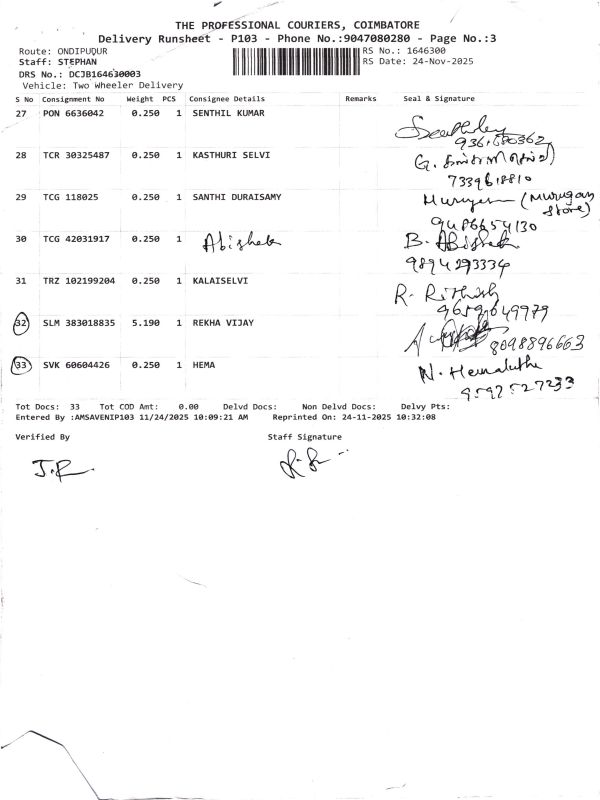 THE PROFESSIONAL COURIERS, COIMBATORE
Delivery Runsheet - P103 - Phone No.:9047080280 - Page No.:3
Route: ONDIPUDUR
RS No.: 1646300
Staff: STEPHAN
RS Date: 24-Nov-2025
DRS No.: DCJB164630003
Vehicle: Two Wheeler Delivery
S No Consignment No Weight PCS Consignee Details Remarks Seal & Signature
27 PON 6636042 0.250 1 SENTHIL KUMAR
28 TCR 30325487 0.250 1 KASTHURI SELVI
G.
7339618810
29 TCG 118025 0.250 1 SANTHI DURAISAMY
Murugan (Murugan Store)
9486654130
30 TCG 42031917 0.250 1 Abishek
B. Abishek
9894293334
31 TRZ 102199204 0.250 1 KALAISELVI
R. Rithish
9659649979
32 SLM 383018835 5.190 1 REKHA VIJAY
8098896663
33 SVK 60604426 0.250 1 HEMA
N. Hemalatha
9597527233
Tot Docs: 33 Tot COD Amt: 0.00 Delvd Docs: Non Delvd Docs: Delvy Pts:
Entered By :AMSAVENIP103 11/24/2025 10:09:21 AM Reprinted On: 24-11-2025 10:32:08
Verified By Staff Signature